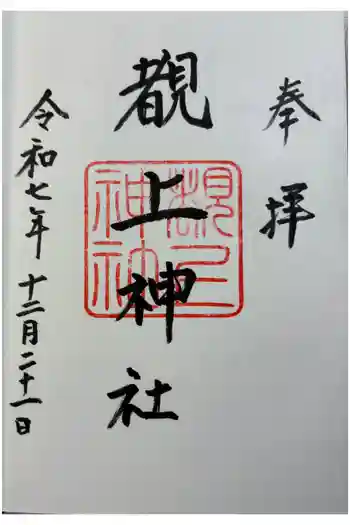 奉拝
覩上神社
令和七年十二月二十一日